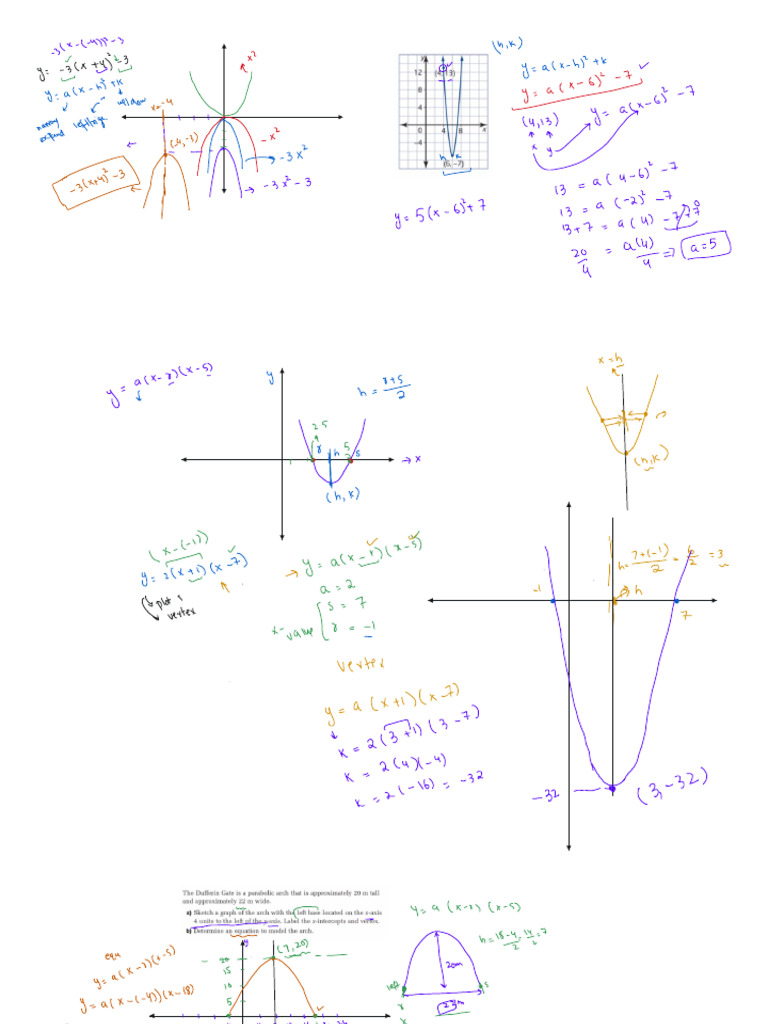 -3(x-(-4))²-3
y= -3(x+4)²-3
y= a(x-h)²+k
x=-4
(-4,-3)
-3(x+4)²-3
x²
-x²
-3x²
-3x²-3
12
8
4
0
-4
4
8
x
(4,13)
h k
(6,-7)
y= 5(x-6)²+7
(h,k)
y= a(x-h)²+k
y= a(x-6)²-7
(4,13)
x y
y= a(x-6)²-7
13 = a(4-6)²-7
13 = a(-2)²-7
13+7 = a(4) -7+7
0
20/4 = a(4)/4 => a=5
y= a(x-r)(x-s)
y
h = r+s/2
2.5
r
h
5
s
x
(h,k)
x=h
(h,k)
(x-(-1))
y= 2(x+1)(x-7)
plot
vertex
y= a(x-r)(x-s)
a=2
s = 7
x-value
r = -1
vertex
y= a(x+1)(x-7)
k = 2(3+1)(3-7)
k = 2(4)(-4)
k = 2(-16) = -32
h= 7+(-1)/2 = 6/2 = 3
h
-1
7
-32
(3,-32)
The Dufferin Gate is a parabolic arch that is approximately 20 m tall
and approximately 22 m wide.
a) Sketch a graph of the arch with the left base located on the x-axis
4 units to the left of the y-axis. Label the x-intercepts and vertex.
b) Determine an equation to model the arch.
equ
y= a(x-r)(x-s)
y= a(x-(-4))(x-18)
y
20
15
10
5
(7,20)
y= a(x-r)(x-s)
h= 18-4/2 = 14/2 = 7
20m
left
r
s
22m
x